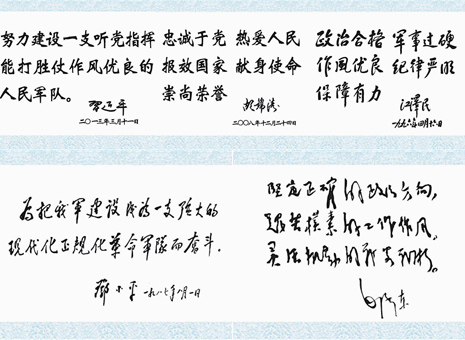 努力建设一支听党指挥
能打胜仗作风优良的
人民军队。
習近平
二〇一三年三月十一日
忠诚于党 热爱人民
报效国家 献身使命
崇尚荣誉
胡锦涛
二〇〇八年十二月二十四日
政治合格 军事过硬
作风优良 纪律严明
保障有力
江泽民
为把我军建设成为一支强大的
现代化正规化革命军队而奋斗.
鄧小平 一九八七年八月一日
坚定正確的政治方向,
艰苦樸素的工作作风,
灵活机动的战略战術。
毛泽东